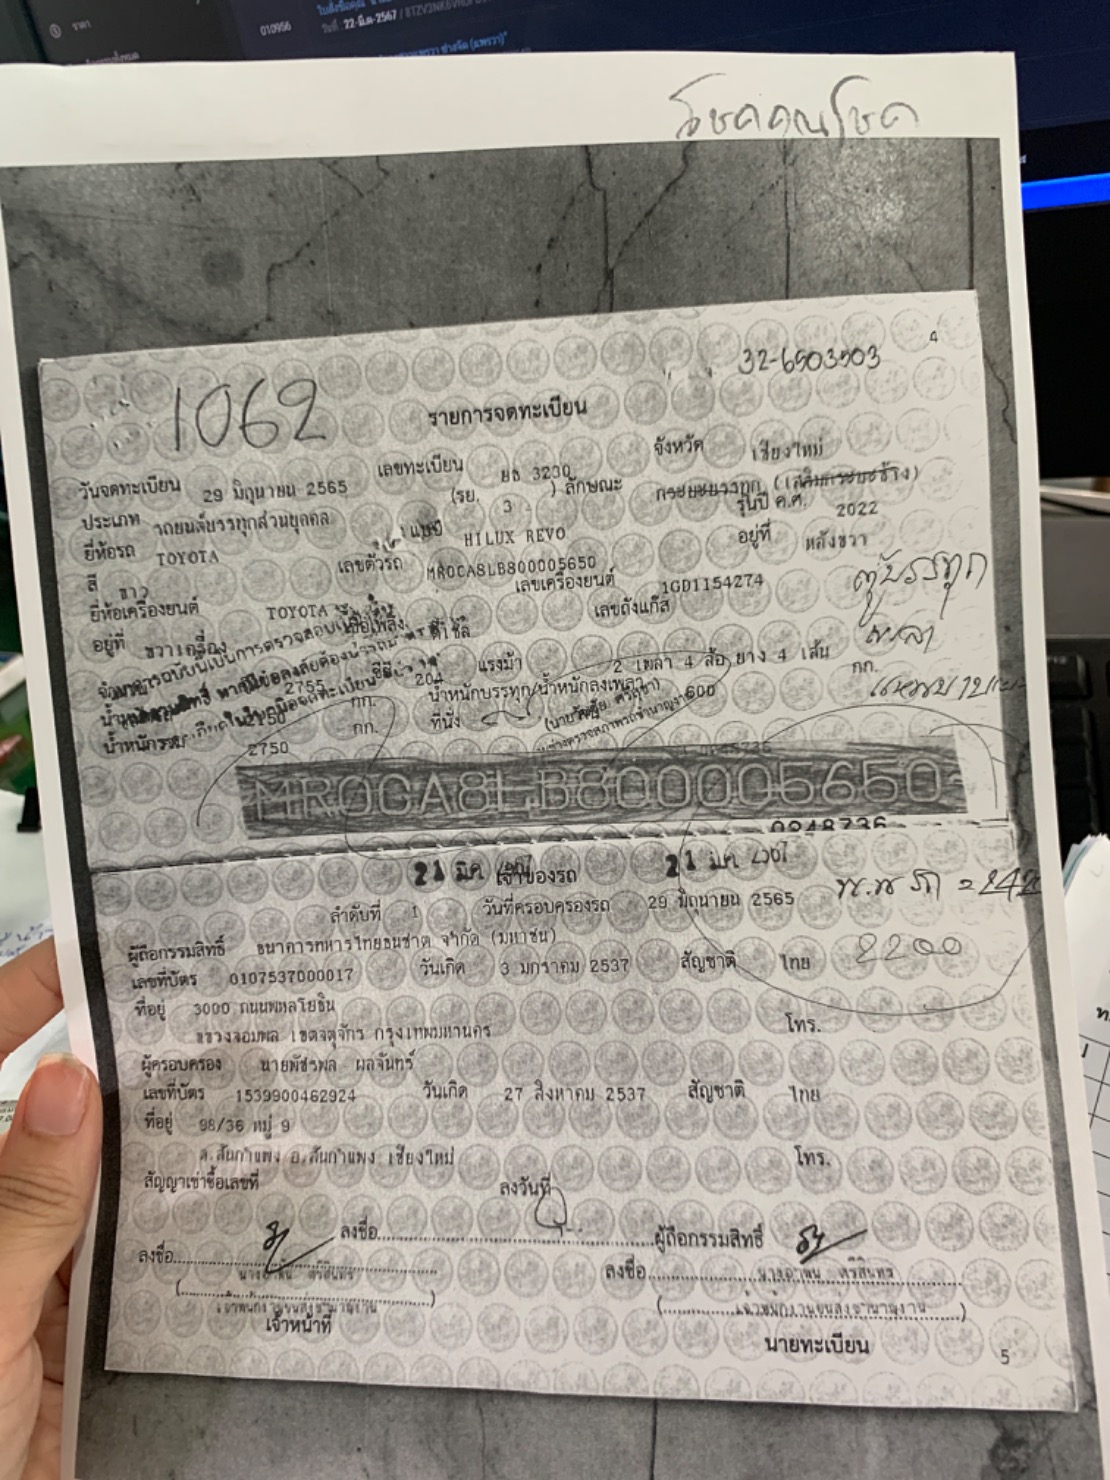 010956
วันที่ : 22-มี.ค.-2567
โชคคุณโชค
4
32-6503503
1062
รายการจดทะเบียน
วันจดทะเบียน 29 มิถุนายน 2565 เลขทะเบียน ยธ 3230 จังหวัด เชียงใหม่
ประเภท รถยนต์บรรทุกส่วนบุคคล (รย. 3 ) ลักษณะ กระบะบรรทุก (เสริมกระบะข้าง)
ยี่ห้อรถ TOYOTA แบบ HILUX REVO รุ่นปี ค.ศ. 2022
สี ขาว เลขตัวรถ MR0CA8LB800005650 อยู่ที่ หลังขวา
ยี่ห้อเครื่องยนต์ TOYOTA เลขเครื่องยนต์ 1GD1154274
ตู้บรรทุก
อยู่ที่ ขวาเครื่อง เชื้อเพลิง ดีเซล เลขถังแก๊ส
204 แรงม้า 2 เพลา 4 ล้อ ยาง 4 เส้น
2755 กก. น้ำหนักบรรทุก/น้ำหนักลงเพลา 600 กก.
น้ำหนักรวม 2750 กก. ที่นั่ง
2750
MR0CA8LB800005650
0948736
21 มี.ค. เจ้าของรถ 21 มี.ค.
ลำดับที่ 1 วันที่ครอบครองรถ 29 มิถุนายน 2565
ผู้ถือกรรมสิทธิ์ ธนาคารทหารไทยธนชาต จำกัด (มหาชน)
2200
เลขที่บัตร 0107537000017 วันเกิด 3 มกราคม 2537 สัญชาติ ไทย
ที่อยู่ 3000 ถนนพหลโยธิน
แขวงจอมพล เขตจตุจักร กรุงเทพมหานคร โทร.
ผู้ครอบครอง นายพัชรพล ผลจันทร์
เลขที่บัตร 1539900462924 วันเกิด 27 สิงหาคม 2537 สัญชาติ ไทย
ที่อยู่ 98/36 หมู่ 9
ต.สันกำแพง อ.สันกำแพง เชียงใหม่ โทร.
สัญญาเช่าซื้อเลขที่ ลงวันที่
ลงชื่อ ผู้ถือกรรมสิทธิ์
ลงชื่อ ลงชื่อ
เจ้าหน้าที่ นายทะเบียน
5